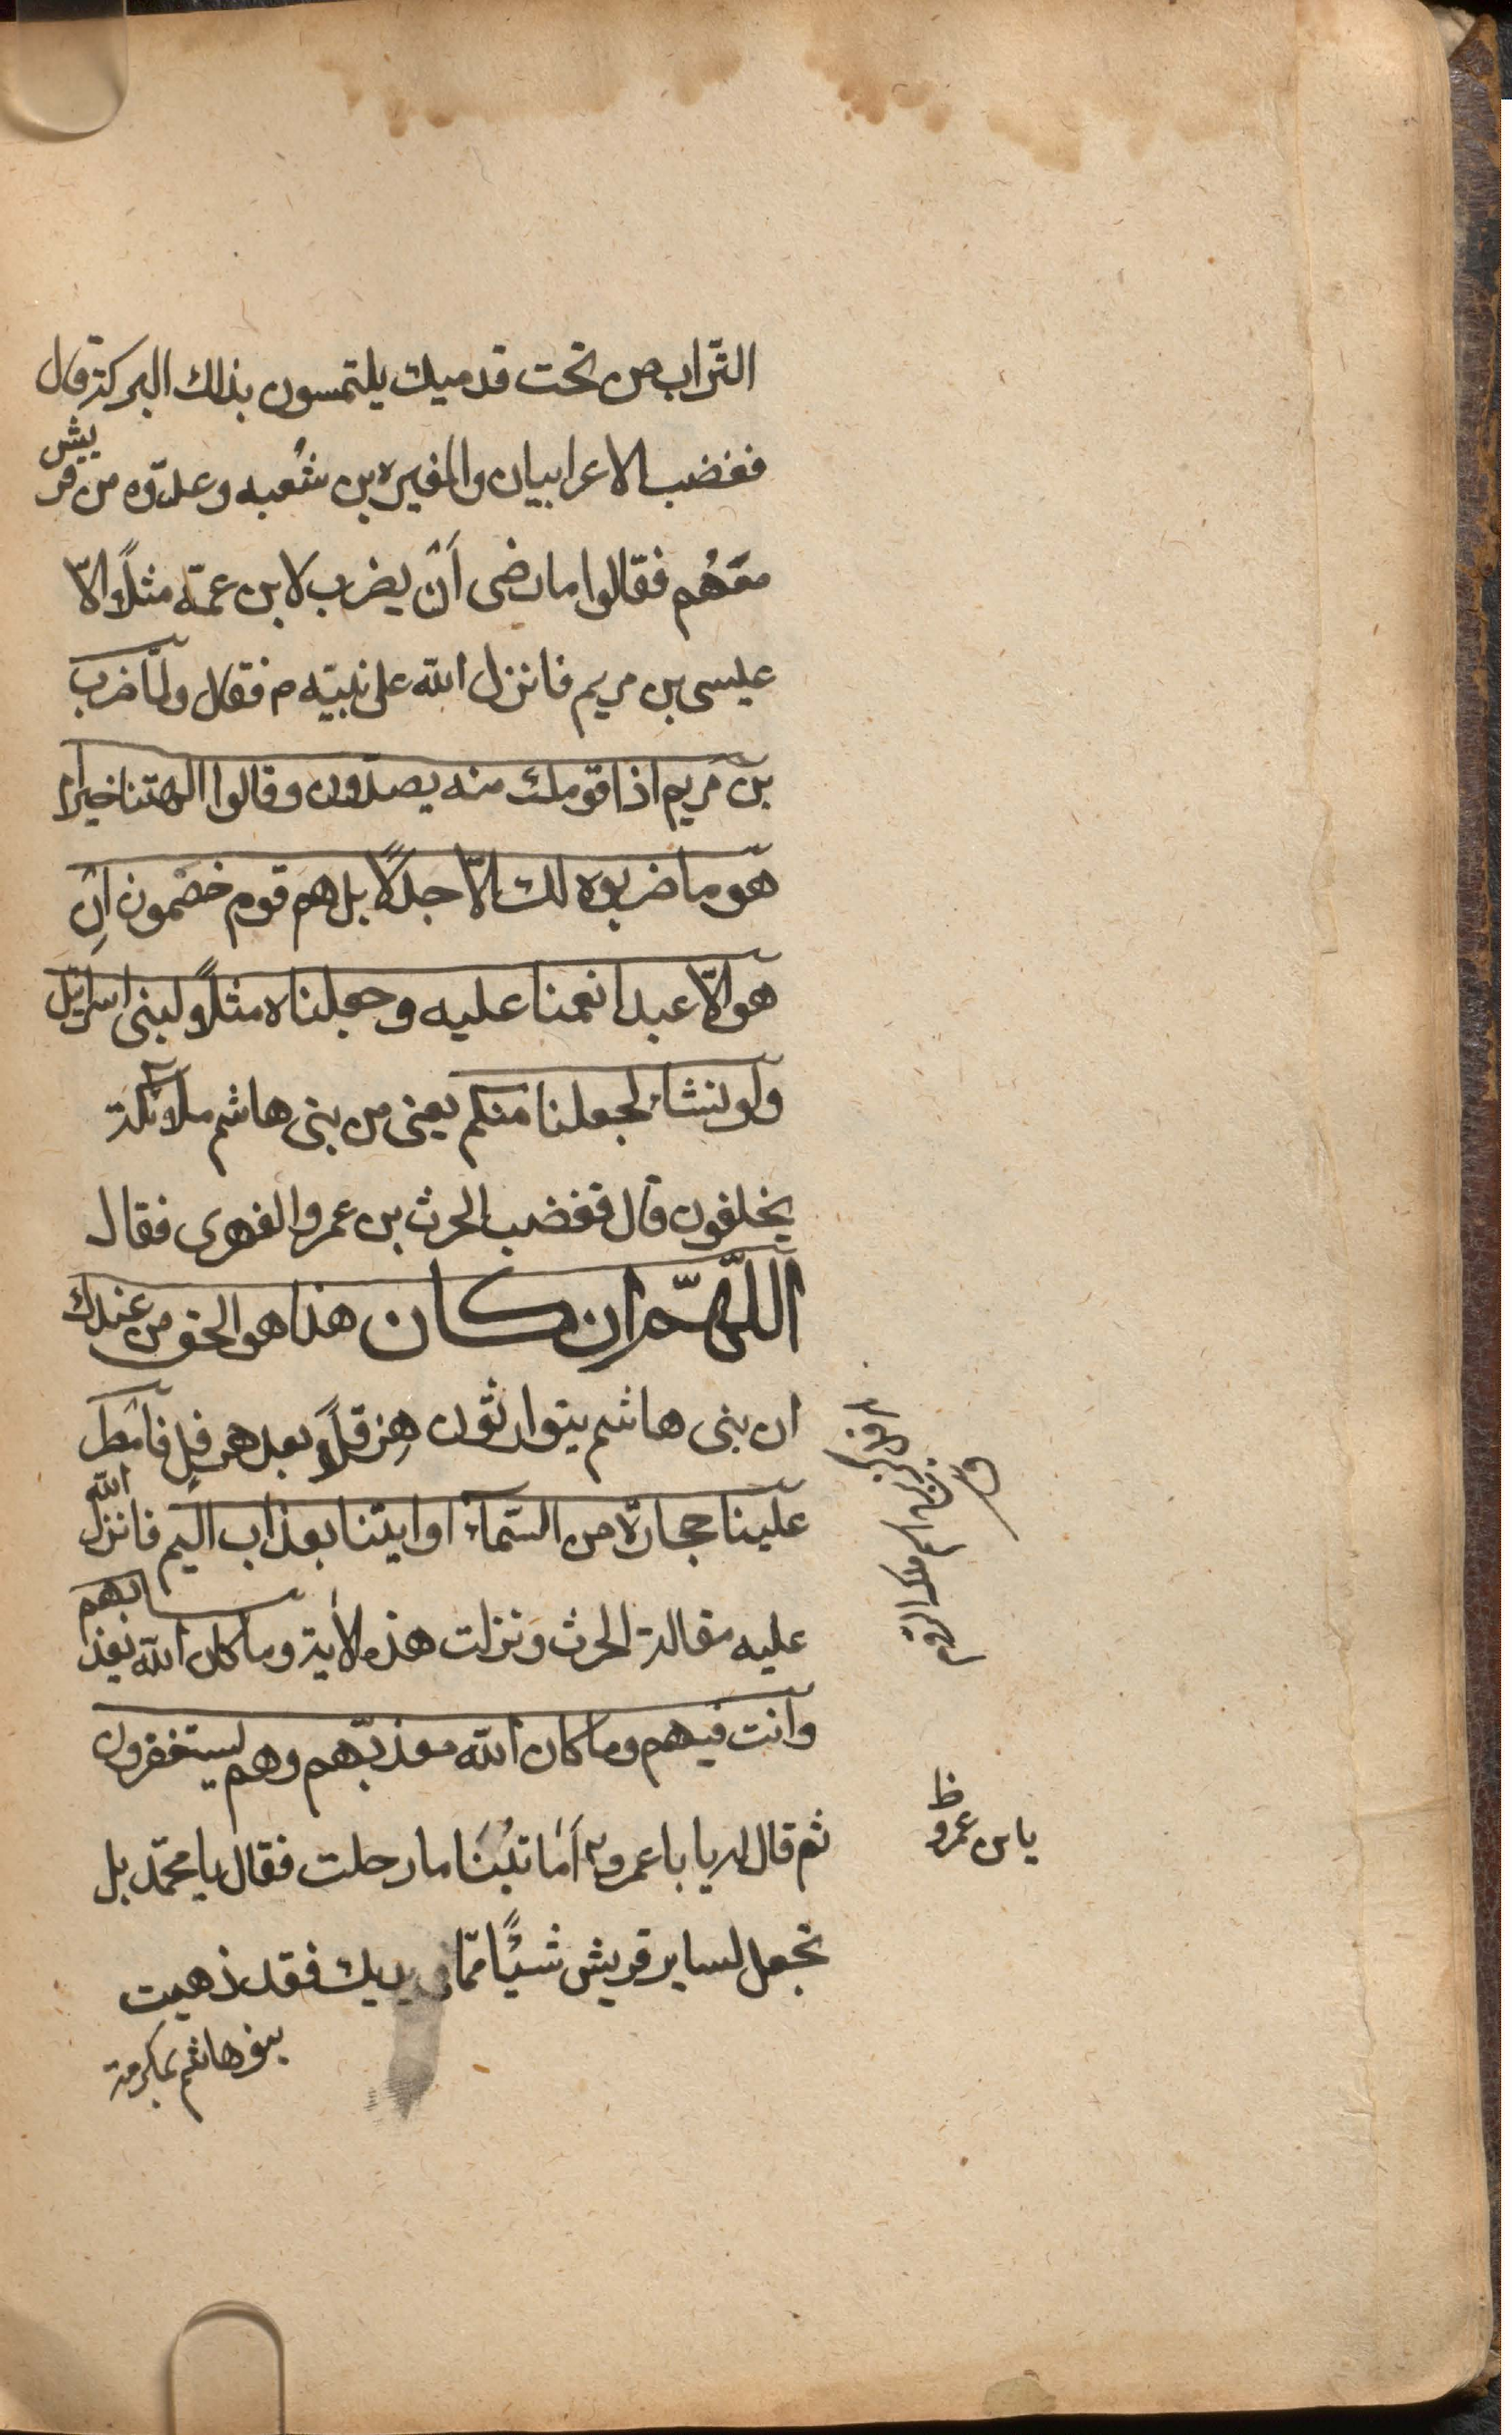 التراب من تحت قدميك يلتمسون بذلك البركة قال
فغضب الاعرابيان والمغيره بن شعبه وعدّوه من قريش
معهُم فقالوا ما رضى اَنْ يضرب لابن عمّه مثلًا الاّ
عيسى بن مريم فانزل الله على نبيّه م فقال ولمّا ضرب
بن مريم اذا قومك منه يصدّون وقالوا الهتنا خير ام
هو ما ضربوه لك الاّ جدلًا بل هم قوم خصمون اِنْ
هو الاّ عبد انعمنا عليه وجعلناه مثلًا لبنى اسرائيل
ولو نشاء لجعلنا منكم يعنى من بنى هاشم ملائكة
يخلفون قال فغضب الحرث بن عمرو الفهرى فقال
اللّهمّ ان كان هذا هو الحق من عندك
ان بنى هاشم يتوارثون هِرَقْلًا بعد هرقلٍ فامطر
علينا حجارة من السّماء او ايتنا بعذاب اليم فانزل الله
عليه مقالة الحرث ونزلت هذه الاية وما كان الله ليعذبهم
وانت فيهم وما كان الله معذّبهم وهم يستغفرون
ثم قال له يا با عمرو اَمّا تُبْنَا ما رحلت فقال يا محمّد بل
تجعل لساير قريش شيئًا ممّا فى يديك فقد ذهبت
بنو هاشم بمكرمة
اسم ملك الروم
يا بن عمرو ظ